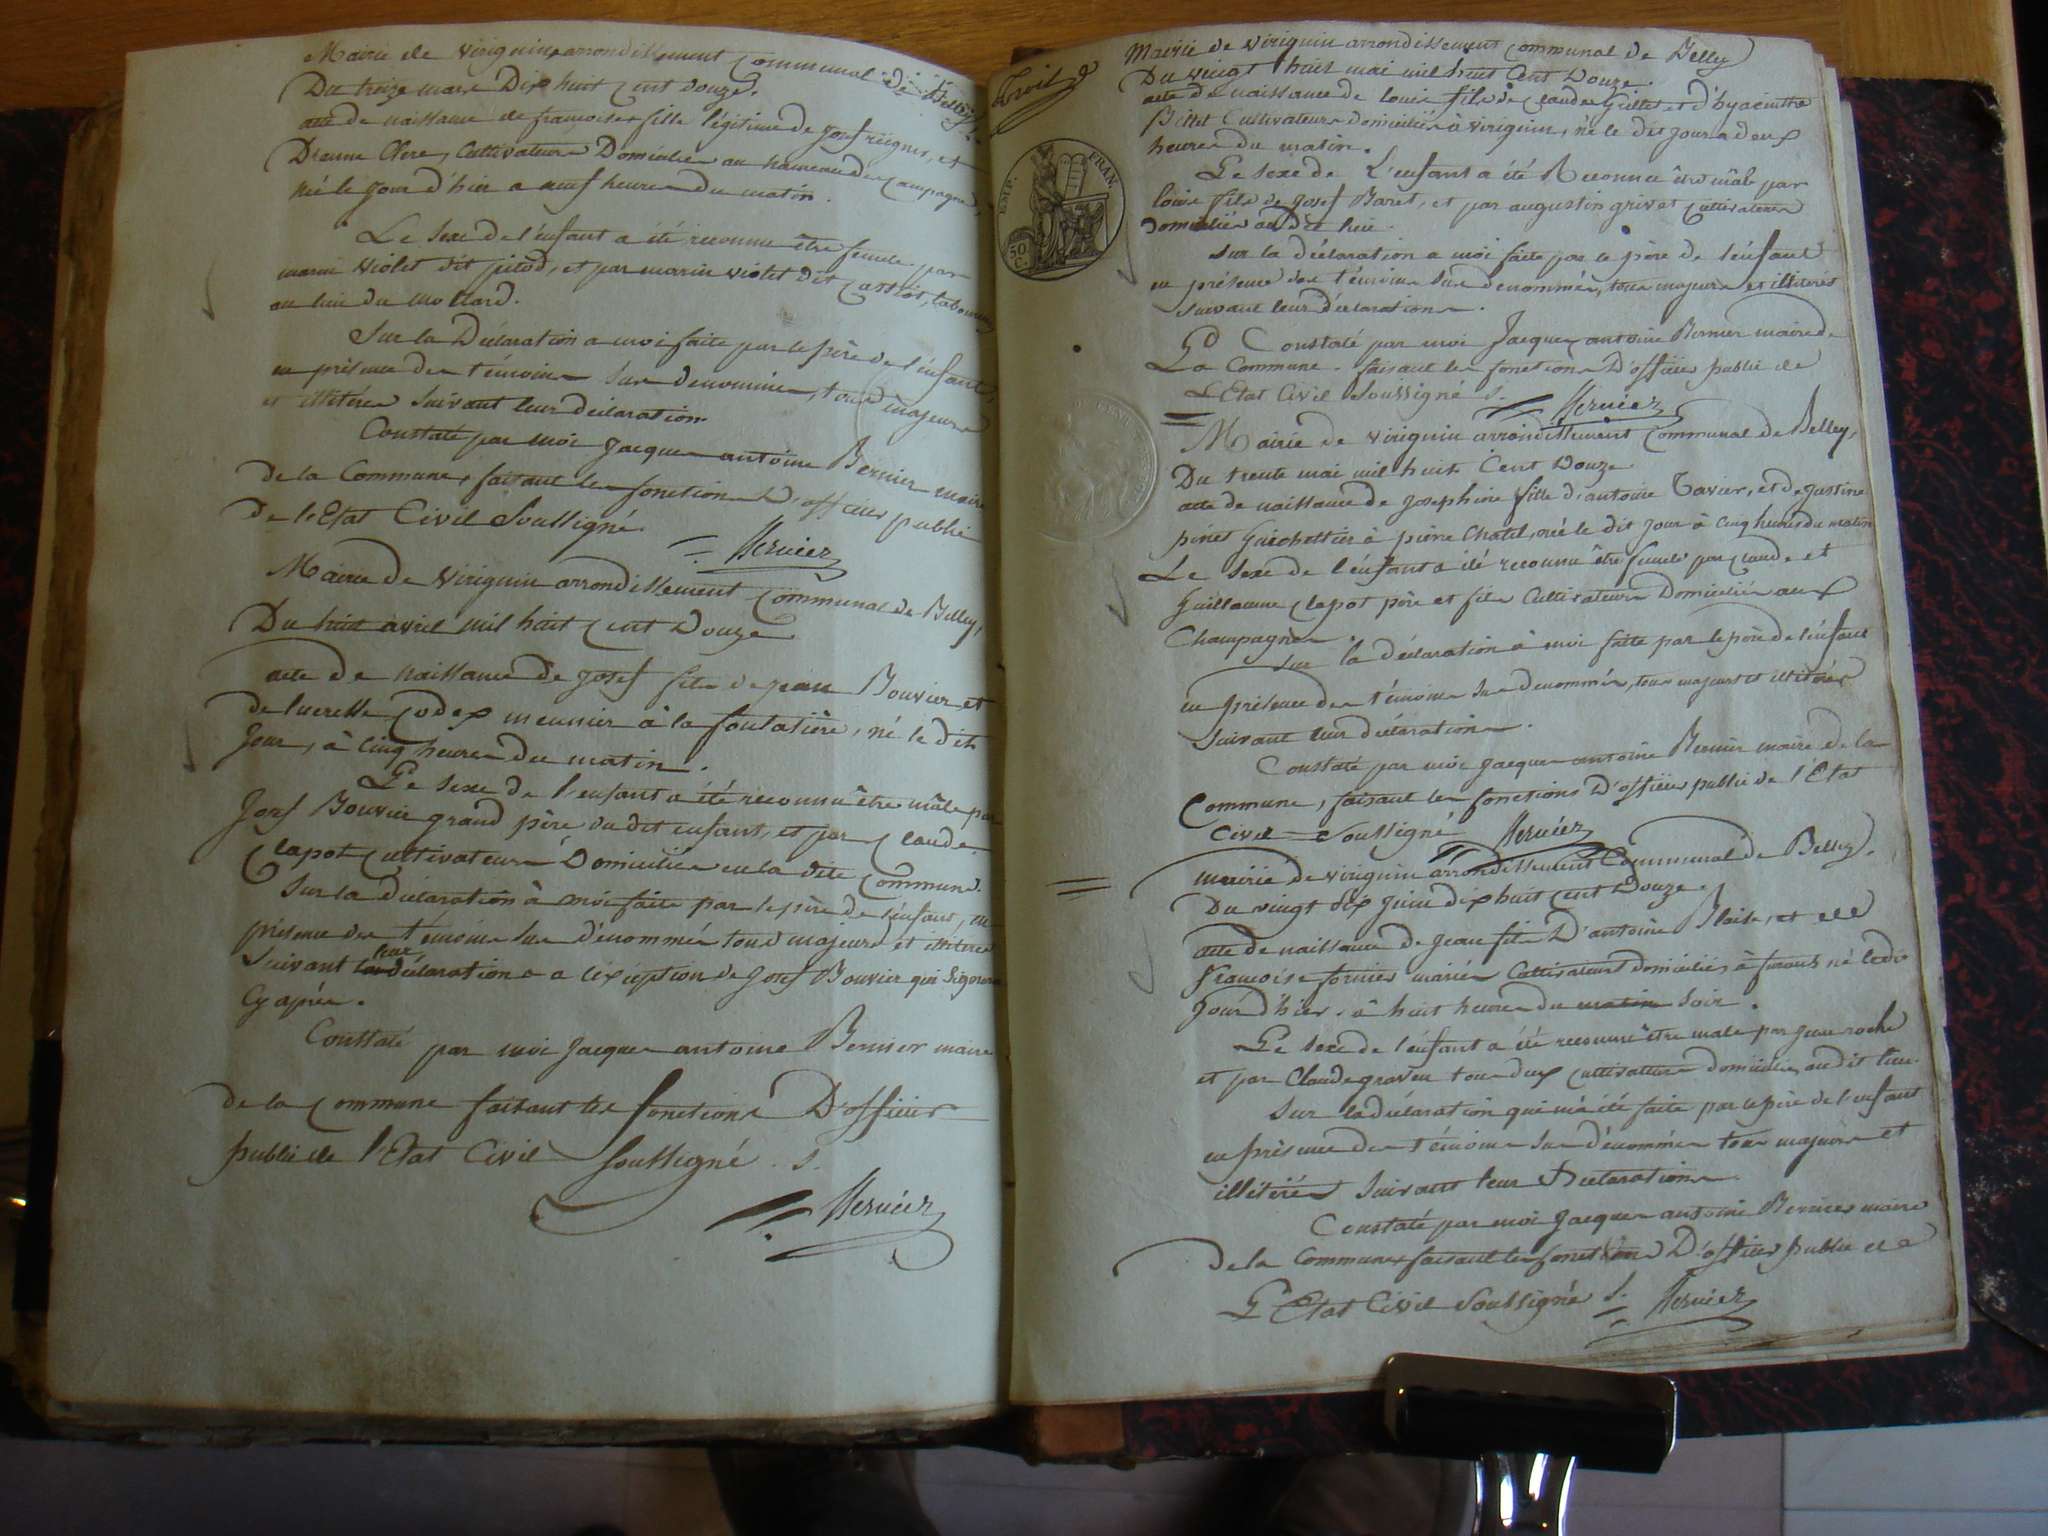 Mairie de Virignin arrondissement Communal de Belley.
Du treize mars Dix huit Cent douze.
acte de naissance de françoise fille légitime de Josef reignier, et
Clerc, Cultivateurs Domiciliés au hameau de Campagne,
né le jour d'hier a neuf heures du matin.
Le sexe de l'enfant a été reconnu être femele par
marin Violet dit pitod, et par marin violet dit Cassot, laboureurs
au lieu du mollard.
Sur la Déclaration a moi faite par le père de l'enfant,
en présence des témoins sus denommés, tous majeurs
et illitérés suivant leur déclaration
Constaté par moi Jacques antoine Bernier maire
de la Commune, faisant les fonctions D'officier public
de l'Etat Civil Soussigné
Mairie de Virignin arrondissement Communal de Belley,
Du huit avril mil huit Cent Douze.
acte de naissance de Josef fils de jean Bouvier et
de lucresse Codex meunier à la foulatière, né le dit
Jour, à Cinq heures du matin.
Le sexe de l'enfant a été reconnu être mâle par
Josf Bouvier grand père du dit enfant, et par Claude
Clapot Cultivateurs Domiciliés en la dite Commune.
Sur la déclaration à moi faite par le père de l'enfant, en
présence des témoins sus dénommés tous majeurs et illitérés
suivant leur déclaration a l'éxception de Josf Bouvier qui Signera
Cy après.
Constaté par moi Jacques antoine Bernier maire
de la Commune faisant les fonctions D'officier
public de l'Etat Civil Soussigné. S.
EMP. FRAN.
50 C.
Mairie de Virignin arrondissement Communal de Belley
Du vingt huit mai mil huit Cent Douze.
acte de naissance de louis fils de Claude Grillet et d'hyacinthe
Billet Cultivateurs domiciliés à virignin, né le dit jour a deux
heures du matin.
Le sexe de L'enfant a été Reconnu être mâle par
louis fils de Josef Baret, et par augustin grivet Cultivateurs
domiciliés au dit lieu.
Sur la déclaration a moi faite par le père de l'enfant
en présence des témoins sus denommés, tous majeurs et illitérés
suivant leur déclaration.
Constaté par moi Jacques antoine Bernier maire de
La Commune faisant les fonctions D'officier public de
L'Etat Civil Soussigné S.
Mairie de Virignin arrondissement Communal de Belley,
Du trente mai mil huit Cent Douze.
acte de naissance de Josephine fille d'antoine Tavier, et de Justine
pinet Guichettier à pierre Chatel, né le dit jour à Cinq heures du matin
Le sexe de l'enfant a été reconnu être femele par Claude et
Guillaume Clapot père et fils Cultivateurs Domiciliés aux
Champagnes.
Sur la déclaration à moi faite par le père de l'enfant
en présence des témoins sus denommés, tous majeurs et illitérés
Suivant leur déclaration.
Constaté par moi Jacques antoine Bernier maire de la
Commune, faisant les fonctions D'officier public de l'Etat
Civil Soussigné
mairie de virignin arrondissement Communal de Belley.
Du vingt six Juin dix huit Cent Douze.
acte de naissance de Jean fils D'antoine Blaise, et de
françoise fornier mariés Cultivateurs domiciliés à né le dit
jour d'hier, à huit heures du matin soir.
Le sexe de l'enfant a été reconnu être male par Jean roche
et par Claude graveu tous deux Cultivateurs domiciliés au dit lieu.
Sur la déclaration qui m'a été faite par le père de l'enfant
en présence des témoins sus dénommés tous majeurs et
illitérés Suivant leur Déclaration
Constaté par moi Jacques antoine Bernier maire
de la Commune faisant les fonctions D'officier public de
L'Etat Civil Soussigné S.